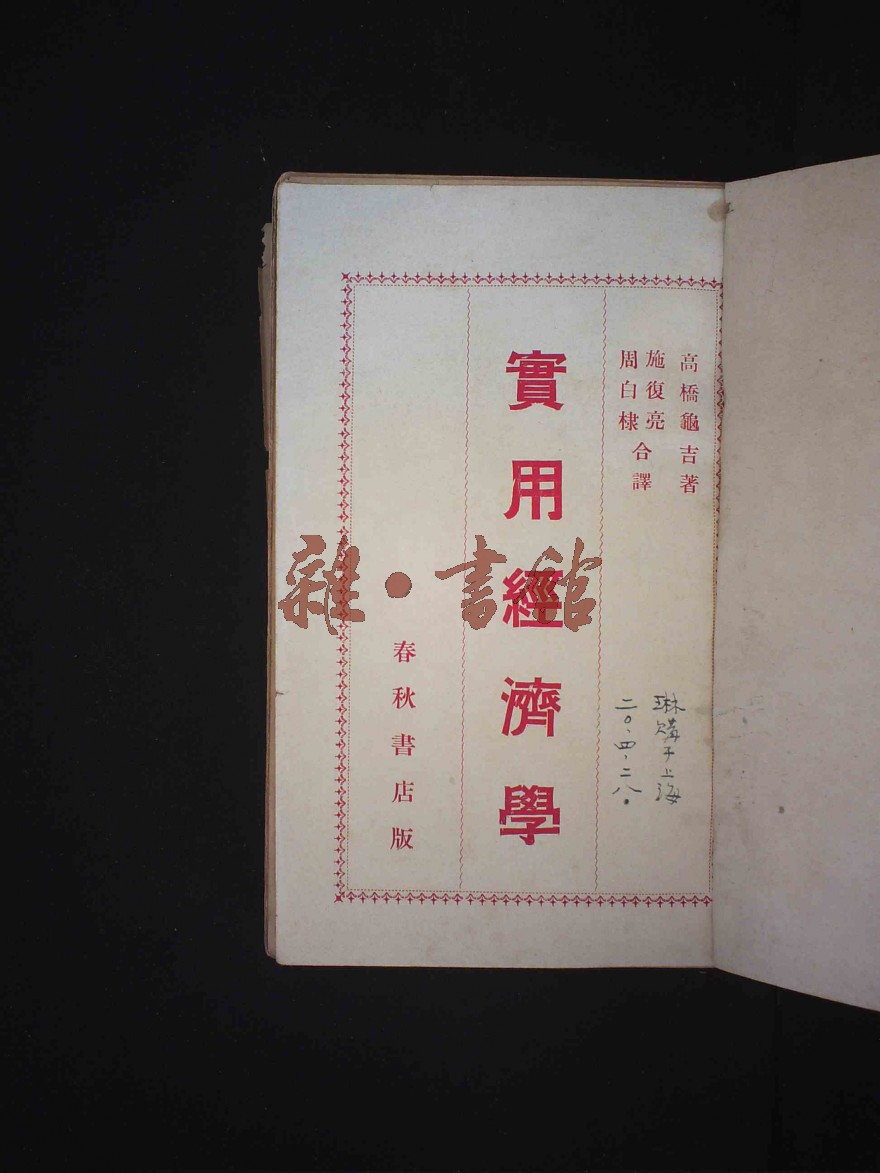 高橋龜吉著
施復亮
周白棣
合譯
實用經濟學
春秋書店版
琳購于上海
二〇.四.二八.
雜·書館